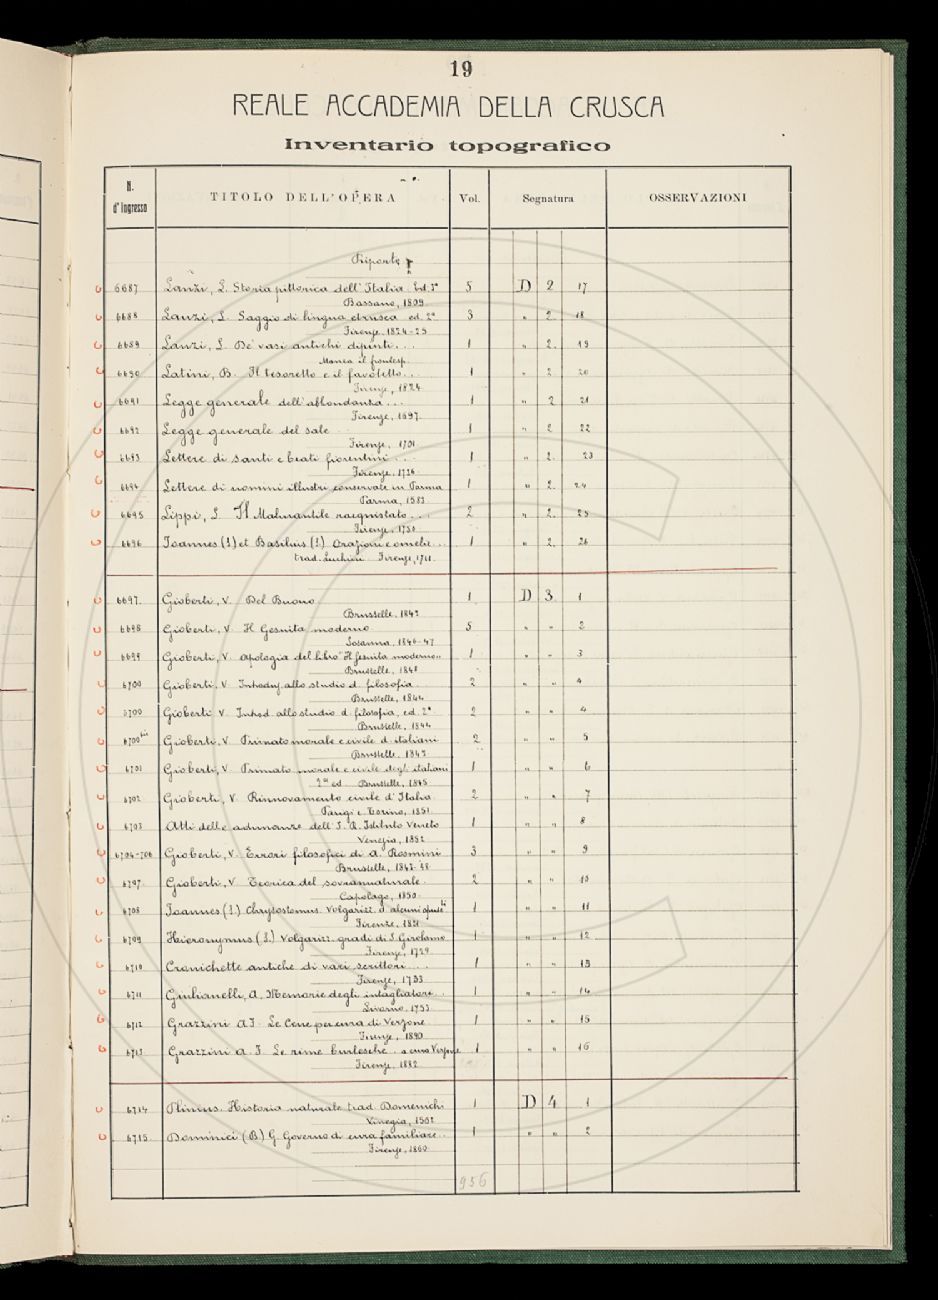 19
REALE ACCADEMIA DELLA CRUSCA
Inventario topografico
N. d'ingresso TITOLO DELL'OPERA Vol. Segnatura OSSERVAZIONI
Riporto
6687 Lanzi, L. Storia pittorica dell'Italia Ed. 3ª 5 D 2 17
Bassano, 1809
6688 Lanzi, L. Saggio di lingua etrusca ed. 2ª 3 " 2. 18
Firenze, 1824-25
6689 Lanzi, L. De' vasi antichi dipinti... 1 " 2. 19
Manca il frontesp.
6690 Latini, B. Il tesoretto e il favoletto... 1 " 2 20
Firenze, 1824
6691 Legge generale dell'abbondanza... 1 " 2 21
Firenze, 1697.
6692 Legge generale del sale 1 " 2 22
Firenze, 1701
6693 Lettere di santi e beati fiorentini... 1 " 2. 23
Firenze, 1736
6694 Lettere di uomini illustri conservate in Parma 1 " 2. 24
Parma, 1583
6695 Lippi, L. Il Malmantile racquistato... 2 " 2. 25
Firenze, 1750
6696 Joannes (S.) et Basilius (S.) Orazioni e omelie... 1 " 2. 26
trad. Lucchini Firenze, 1711
6697. Gioberti, V. Del Buono 1 D 3. 1
Brusselle, 1843
6698 Gioberti, V. Il Gesuita moderno. 5 " " 2
Losanna, 1846-47
6699 Gioberti, V. Apologia del libro "Il gesuita moderno" 1 " " 3
Brusselle, 1848
6700 Gioberti, V. Introduz. allo studio d. filosofia. 2 " " 4
Brusselle, 1844
6700 Gioberti V. Introd. allo studio d. filosofia, ed. 2ª 2 " " 4
Brusselle, 1844
6700 bis Gioberti, V. Primato morale e civile d. italiani 2 " " 5
Brusselle, 1843
6701 Gioberti, V. Primato morale e civile degli italiani 1 " " 6
2ª ed. Brusselle, 1845
6702 Gioberti, V. Rinnovamento civile d'Italia 2 " " 7
Parigi e Torino, 1851
6703 Atti delle adunanze dell'I. R. Istituto Veneto 1 " " 8
Venezia, 1852
6704-706 Gioberti, V. Errori filosofici di A. Rosmini 3 " " 9
Brusselle, 1843-48
6707 Gioberti, V. Teorica del sovrannaturale. 2 " " 10
Capolago, 1850
6708 Joannes (S.) Chrysostomus. Volgarizz. d'alcuni 1 " " 11
Firenze, 1821
6709 Hieronymus (S.) Volgarizz. gradi di S. Girolamo 1 " " 12
Firenze, 1729
6710 Cronichette antiche di vari scrittori... 1 " " 13
Firenze, 1733
6711 Giulianelli, A. Memorie degli intagliatori... 1 " " 14
Livorno, 1753
6712 Grazzini A. F. Le Cene per cura di Verzone 1 " " 15
Firenze, 1890
6713 Grazzini A. F. Le rime burlesche. a cura Verzone 1 " " 16
Firenze, 1882
6714 Plinius. Historia naturale trad. Domenichi 1 D 4 1
Vinegia, 1562
6715 Dominici (B.) G. Governo di cura familiare.. 1 " " 2
Firenze, 1860
956